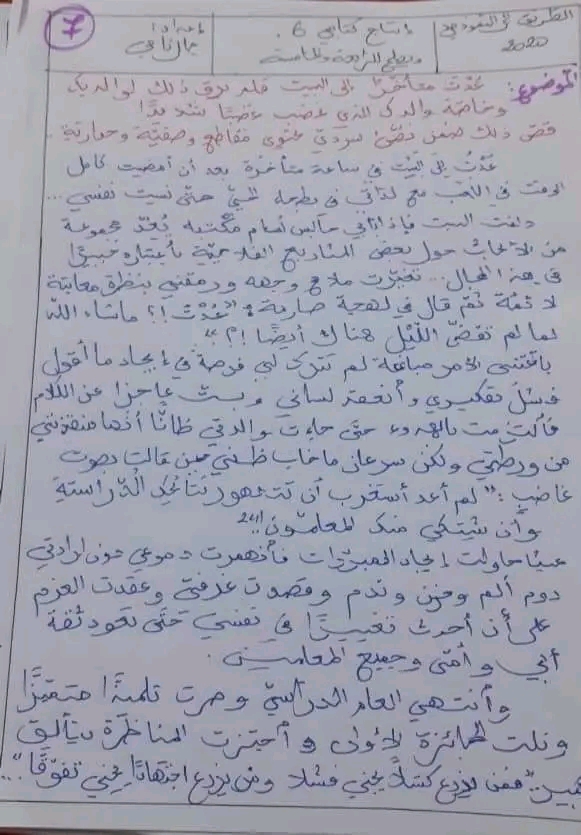 الطريق الى النموذجي
2020
إنتاج كتابي 6
الرابعة والخامسة
إعداد:
7
الموضوع: عُدْتَ متأخّرًا إلى البيت فلم يرق ذلك لوالديك
وخاصّة والدك الذي غضب غضبًا شديدًا
قصّ ذلك ضمن نصّ سرديّ محتوى مقاطع وصفيّة وحواريّة.
عُدْتُ إلى البيْت في ساعة متأخّرة بعد أن أمضيت كامل
الوقت في اللّعب مع لداتي في بطحاء الحيّ حتّى نسيت نفسي...
دلفت البيت فإذا بأبي جالس أمام مكتبه يُعِدّ مجموعة
من الأبحاث حول بعض المشاريع الفلاحيّة بإعتباره خبيرًا
في هذا المجال... تغيّرت ملامح وجهه ورمقني بنظرة معاتبة
لائمة ثمّ قال في لهجة صارمة: "عُدْتَ!؟ ماشاء الله
لما لم تقضّ اللّيْل هناك أيضًا!؟"
باغتني الأمر مباغتة لم تترك لي فرصة في إيجاد ما أقول
فشلّ تفكيري وأنعقد لساني وبتّ عاجزا عن الكلام
فألتزمت بالهدوء حتّى جاءت والدتي ظانّا أنّها منقذتي
من ورطتي ولكن سرعان ما خاب ظنّي حين قالت بصوت
غاضب: "لم أعد أستغرب أن تتدهور نتائجك الدّراسيّة
وأن يشتكي منك المعلّمون!"
عبثا حاولت إيجاد المبرّرات فأنهمرت دموعي دون إرادتي
دموع ألم وحزن وندم وقصدت غرفتي وعقدت العزم
على أن أحدث تغييرًا في نفسي حتّى تعود ثقة
أبي وأمّي وجميع المعلّمين.
وأنتهى العام الدراسيّ وصرت تلميذًا متميّزًا
ونلت الجائزة الأولى وأجتزت المناظرة بتألّق
"فمن يزرع كسلاً يجني فشلا ومن يزرع اجتهادًا يجني تفوّقًا"...